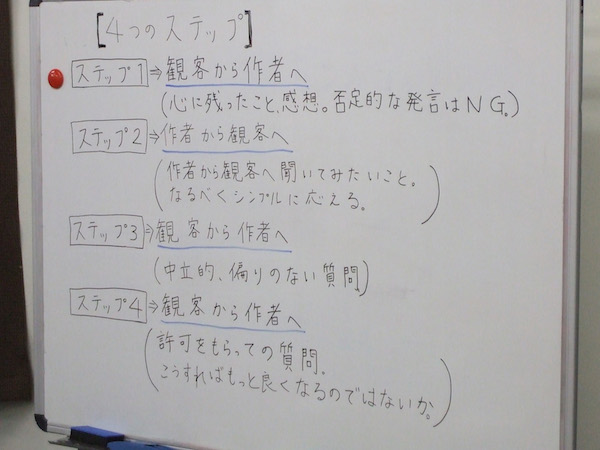 [4つのステップ]
ステップ1⇒観客から作者へ
(心に残ったこと、感想。否定的な発言はNG。)
ステップ2⇒作者から観客へ
(作者から観客へ聞いてみたいこと。
なるべくシンプルに応える。)
ステップ3⇒観客から作者へ
(中立的、偏りのない質問)
ステップ4⇒観客から作者へ
(許可をもらっての質問。
こうすればもっと良くなるのではないか。)